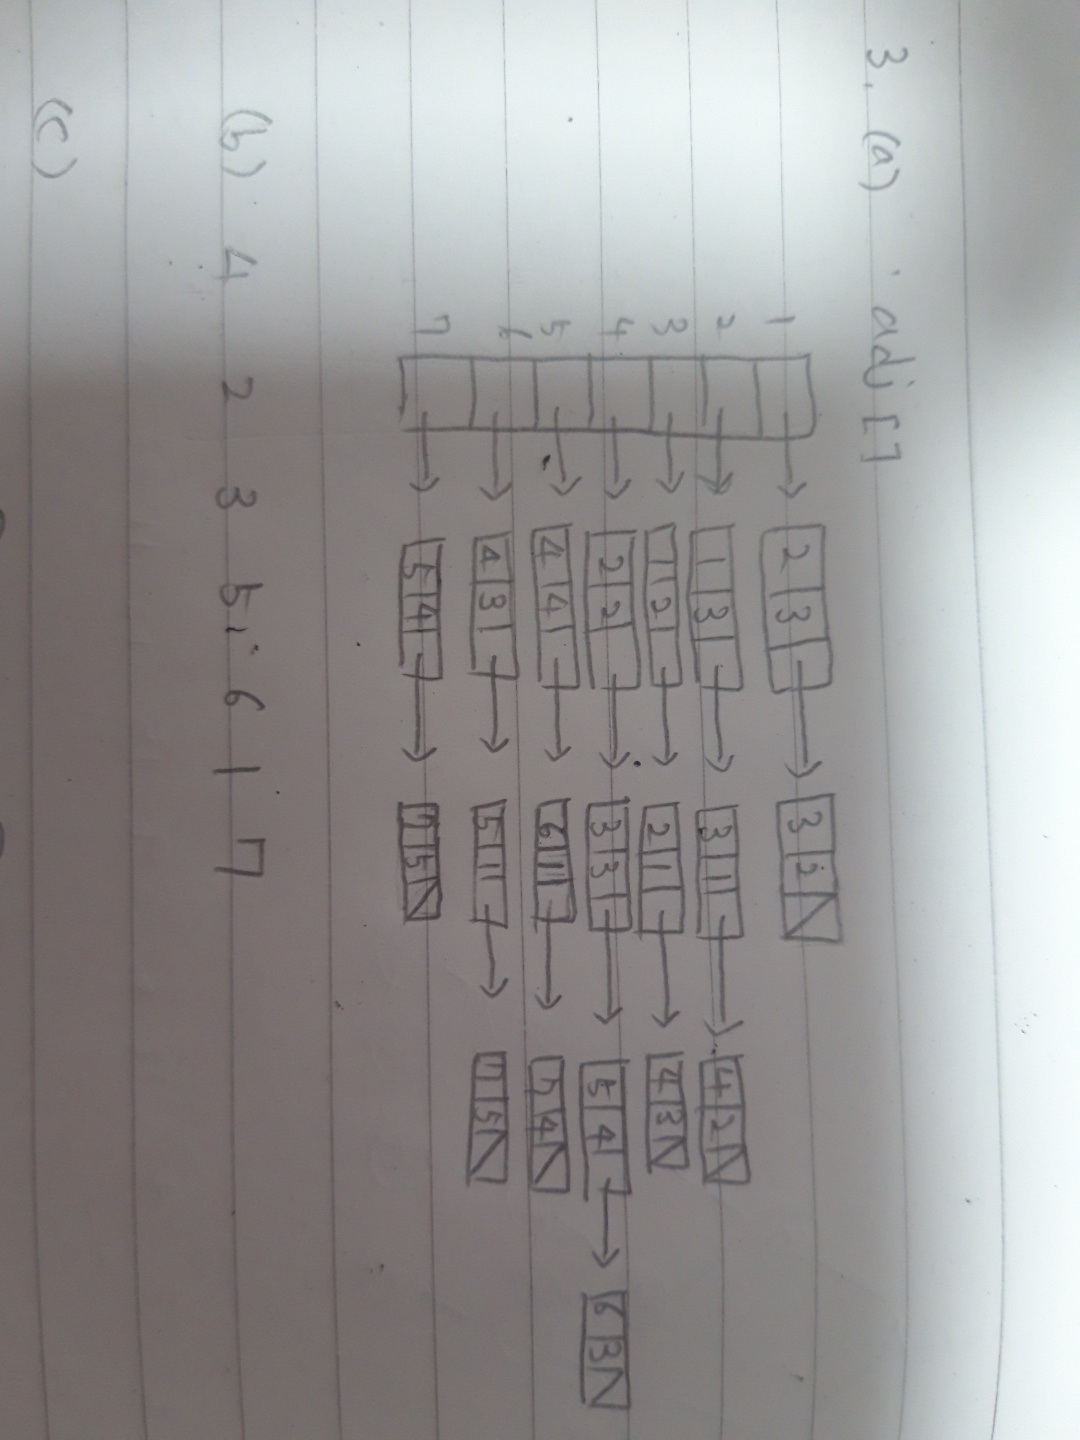 3. (a) adj []
1 → 2 3 → 3 2
2 → 1 3 → 3 1 → 4 2
3 → 1 2 → 2 1 → 4 3
4 → 2 2 → 3 3 → 5 4 → 6 3
5 → 4 4 → 6 1 → 7 4
6 → 4 3 → 5 1 → 7 5
7 → 5 4 → 7 5
(b) 4 2 3 5 6 1 7
(c)